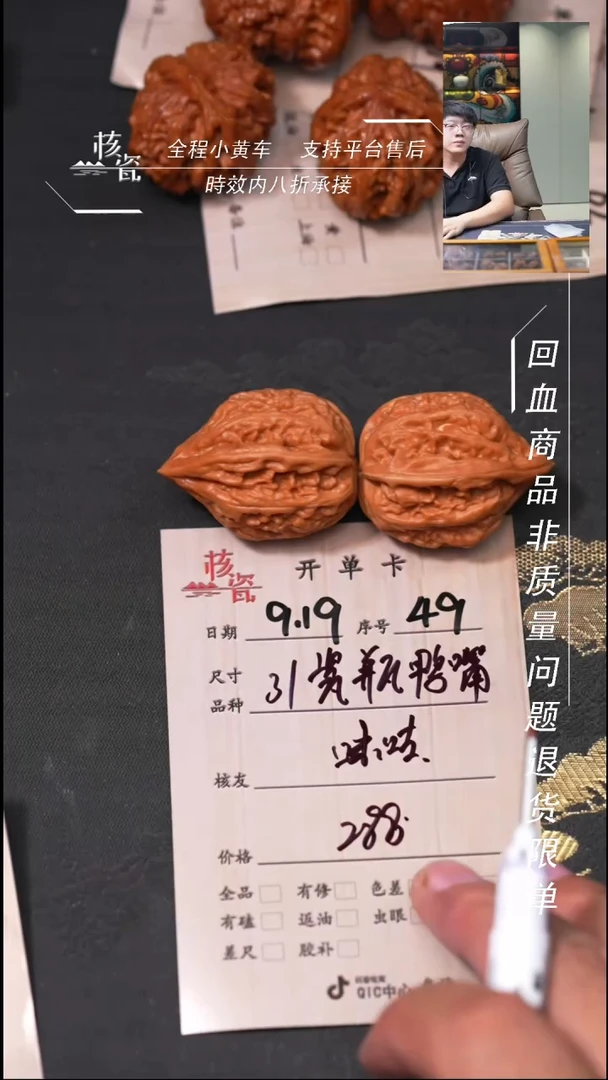 核瓷
全程小黄车 支持平台售后
時效内八折承接
回血商品非质量问题退货限单
核瓷
开单卡
日期 9.19 序号 49
尺寸
品种 31瓷瓶鸭嘴
核友
价格 288.
全品 有修 色差
有磕 返油 虫眼
差尺 胶补
QIC中心